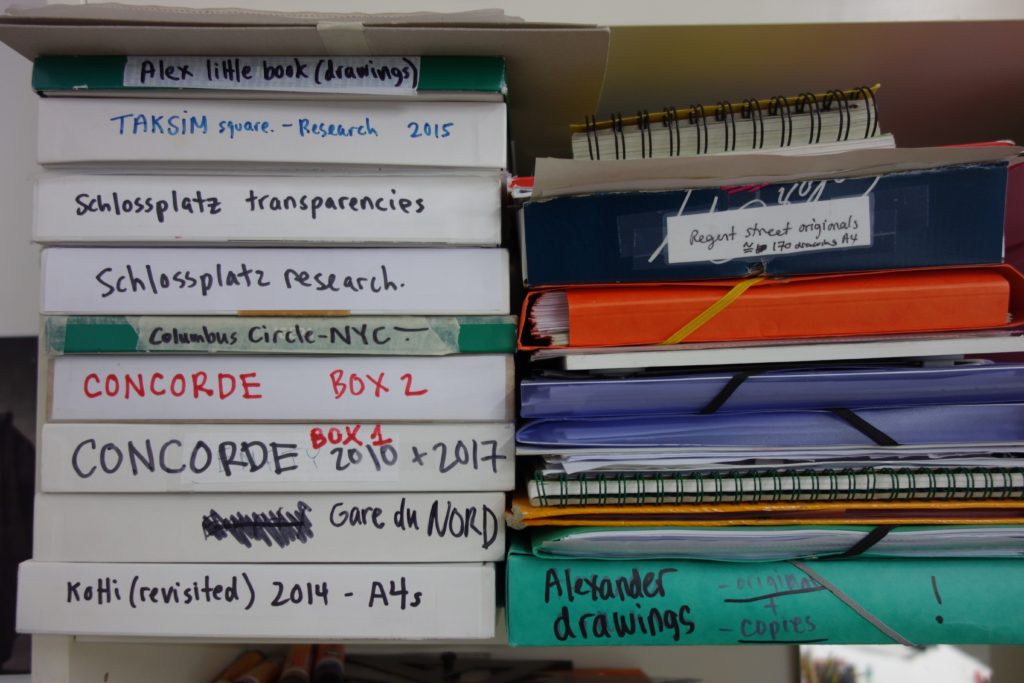 Alex little book (drawings)
TAKSIM square. - Research 2015
Schlossplatz transparencies
Schlossplatz research.
Columbus Circle-NYC -
CONCORDE BOX 2
BOX 1
CONCORDE 2010 + 2017
Gare du NORD
Kotti (revisited) 2014 - A4s
Regent street originals
≈ 170 drawings A4
Alexander
drawings
- originals
+
- copies
!